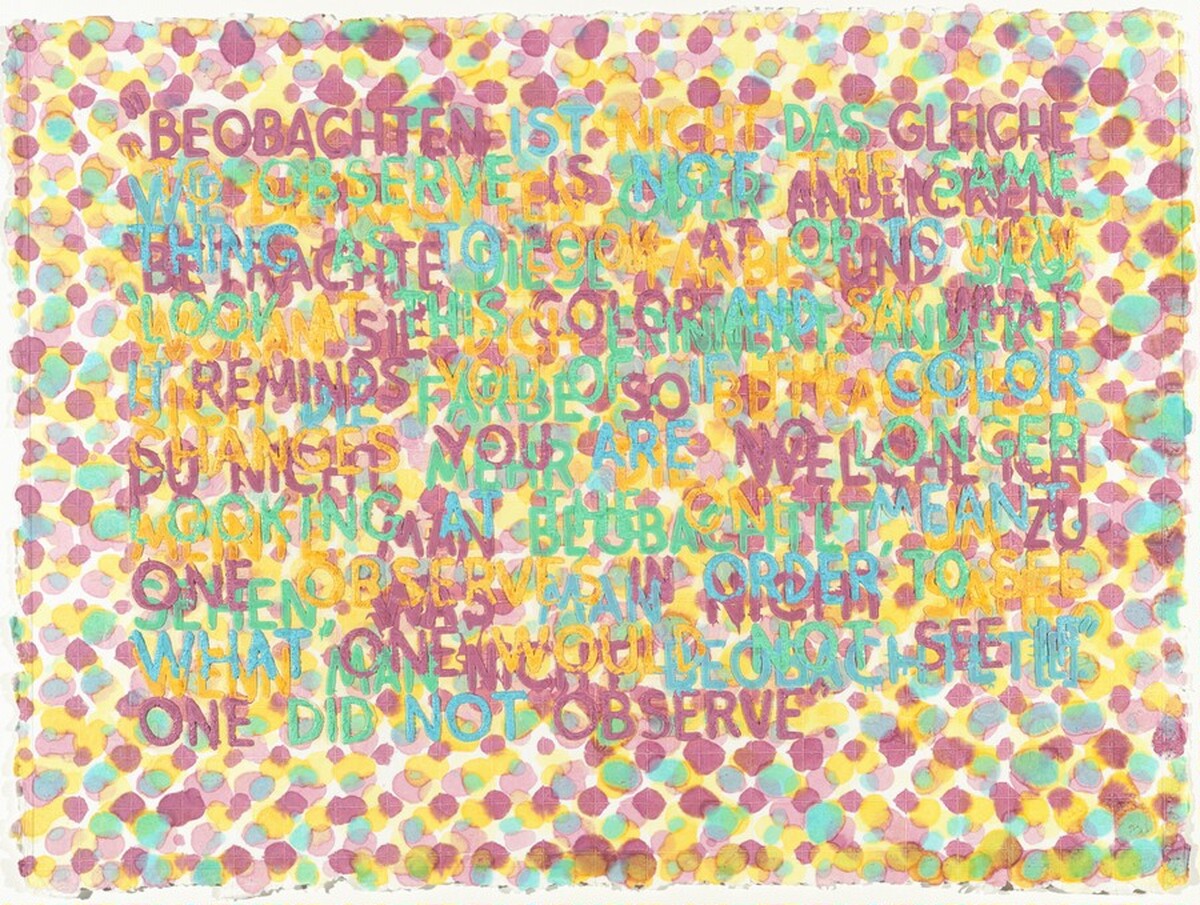 "BEOBACHTEN IST NICHT DAS GLEICHE
TO OBSERVE IS NOT THE SAME
WIE BETRACHTEN ODER ANBLICKEN.
THING AS TO LOOK AT OR TO VIEW
'BETRACHTE DIESE FARBE UND SAG,
'LOOK AT THIS COLOR AND SAY WHAT
WORAN SIE DICH ERINNERT' ÄNDERT
IT REMINDS YOU OF' IF THE COLOR
SICH DIE FARBE, SO BETRACHTEST
CHANGES YOU ARE NO LONGER
DU NICHT MEHR DIE WELCHE ICH
LOOKING AT THE ONE I MEANT.
MEINTE. MAN BEOBACHTET, UM ZU
ONE OBSERVES IN ORDER TO SEE
SEHEN, WAS MAN NICHT SÄHE
WHAT ONE WOULD NOT SEE IF
WENN MAN NICHT BEOBACHTETE"
ONE DID NOT OBSERVE".